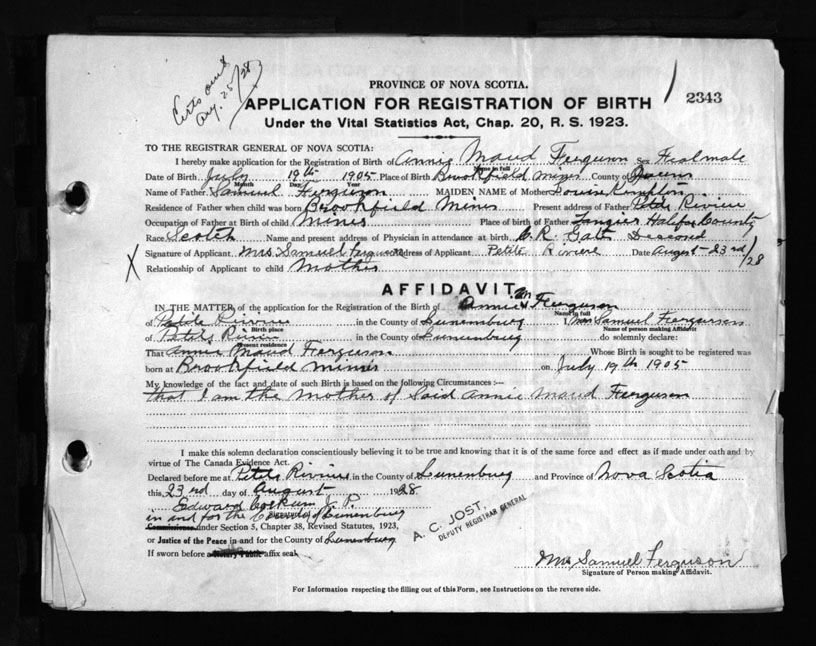 Certs out
Aug. 25/28
PROVINCE OF NOVA SCOTIA.
APPLICATION FOR REGISTRATION OF BIRTH
2343
Under the Vital Statistics Act, Chap. 20, R. S. 1923.
TO THE REGISTRAR GENERAL OF NOVA SCOTIA:
I hereby make application for the Registration of Birth of Annie Maud Ferguson Sex Fealmale
Name in full
Date of Birth July 19th 1905 Place of Birth Brookfield Mines County of Queens
Month Day Year
Name of Father Samuel Ferguson MAIDEN NAME of Mother Louise Kimpton
Residence of Father when child was born Brookfield Mines Present address of Father Petite Riviere
Occupation of Father at Birth of child Mines Place of birth of Father Tangier Halifax County
Race Scotch Name and present address of Physician in attendance at birth C. R. Gatt
Signature of Applicant Mrs Samuel Ferguson Address of Applicant Petite Riviere Date August 23rd/28
X Relationship of Applicant to child Mother
AFFIDAVIT
IN THE MATTER of the application for the Registration of the Birth of Annie M Ferguson
Name in full
of Petite Riviere in the County of Lunenburg I, Mrs Samuel Ferguson
Birth place Name of person making Affidavit
of Petite Riviere in the County of Lunenburg do solemnly declare:
Present residence
That Annie Maud Ferguson Whose Birth is sought to be registered was
born at Brookfield Mines on July 19th 1905
My knowledge of the fact and date of such Birth is based on the following Circumstances:—
that I am the Mother of Said Annie Maud Ferguson
I make this solemn declaration conscientiously believing it to be true and knowing that it is of the same force and effect as if made under oath and by
virtue of The Canada Evidence Act.
Declared before me at Petite Riviere in the County of Lunenburg and Province of Nova Scotia
this 23rd day of August 1928
Edward J. P.
in and for the County of Lunenburg
under Section 5, Chapter 38, Revised Statutes, 1923,
or Justice of the Peace in and for the County of Lunenburg
If sworn before a Notary Public affix seal
A. C. JOST,
DEPUTY REGISTRAR GENERAL
Mrs Samuel Ferguson
Signature of Person making Affidavit.
For Information respecting the filling out of this Form, see Instructions on the reverse side.